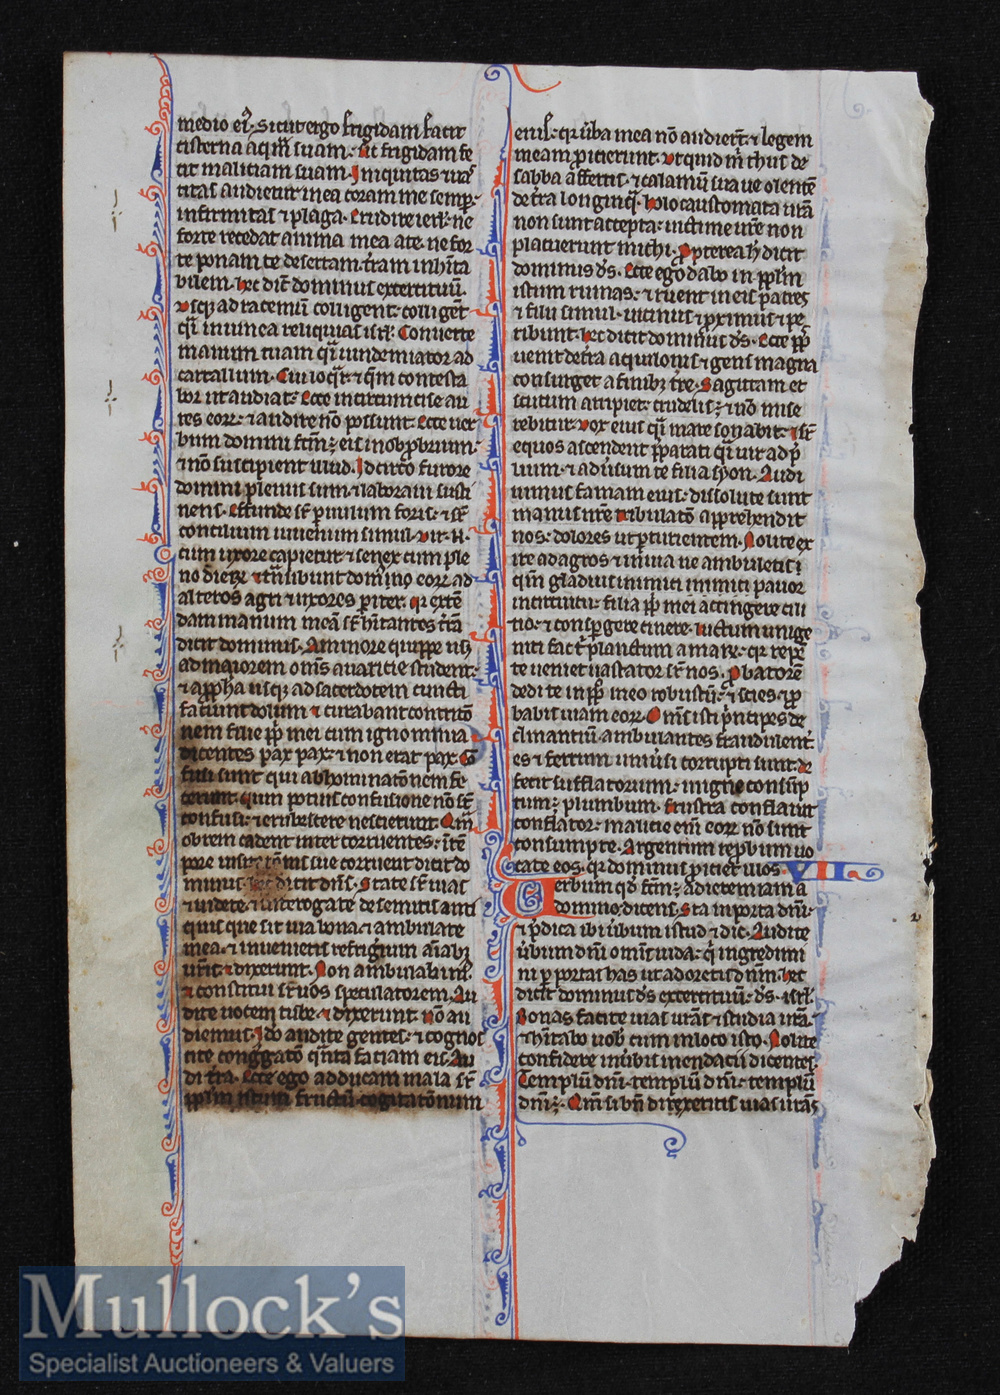 medio eı᷒. Sicut ergo frigidam facit
cisterna aq̃m suam: sic frigidam fe
cit maliciam suam. Iniquitas ⁊ uas
titas audietur in ea coram me semp:
infirmitas ⁊ plaga. Erudire ierl̃m: ne
forte recedat anima mea a te. ne for
te ponam te desertam. t̃ram inhĩta
bilem. Hec dic̃t dominus exercituũ.
Usq; ad racemũ colligent: colliget̃
q̃i in uinea reliquias isrl̃. Conuerte
manum tuam q̃i uindemiator ad
cartallum. Cui loq̃r: ⁊ q̃m contesta
bor ut audiat: Ecce incircumcise au
res eor̃: ⁊ audire nõ possunt. Ecce uer
bum domini fc̃m ẽ eis in obp̃brium:
⁊ nõ suscipient illud. Idcirco furore
domini plenus sum. ⁊ laboraui susti
nens. Effunde sr̃ paruulum foris: ⁊ sr̃
concilium iuuenum simul. Uir .n.
cum uxore capietur: ⁊ senex cum ple
no dierr̃. ⁊ t̃nsibunt domus eor̃ ad
alteros agri ⁊ uxores p̃iter. q̃r exten̄
dam manum meã sr̃ hĩtantes t̃rã
dicit dominus. A minore quippe usq;
ad maiorem om̃s auaricie student:
⁊ a pp̃ha usq; ad sacerdotem cuncti
faciunt dolum. ⁊ curabant contritõ
nem filie pp̃li mei cum ignominia
dicentes pax pax: ⁊ non erat pax. Cõ
fusi sunt qui abhominatõnem fe
cerunt. quin potius confusione nõ st̃
confusi: ⁊ erubescere nescierunt. Qm̃
obrem cadent inter corruentes: in tẽ
pore uisitatõnis sue corruent dicit do
minus. Hec dicit dñs. State sr̃ uias
⁊ uidete. ⁊ interrogate de semitis anti
quis que sit uia bona: ⁊ ambulate
in ea: ⁊ inuenietis refrigerium aĩabȝ
ur̃is. ⁊ dixerunt. Non ambulabimus.
⁊ constitui sr̃ uos speculatorem. Au
dite uocem tube. ⁊ dixerunt. nõ au
diemus. Ido audite gentes: ⁊ cognos
cite congregatõ q̃nta faciam eis. Au
di t̃ra. Ecce ego adducam mala sr̃
pp̃lm istum. fructũ cogitatõnum
eius: q̃r ũba mea nõ audierr̃t. ⁊ legem
meam p̃icierunt. Ut quid m̃ thus de
sabba affertis: ⁊ calamũ suaue olentẽ
de t̃ra longinq̃. holocaustomata ur̃a
non sunt accepta: uictime ur̃e non
placuerunt michi. Ppterea h̃ dicit
dominus dš. Ecce ego dabo in pp̃lm
istum ruinas: ⁊ ruent in eis patres
⁊ filii simul. uicinus ⁊ p̃ximus ⁊ pe
ribunt. Hec dicit dominus dš. Ecce pp̃ls
uenit de t̃ra aquilonis ⁊ gens magna
consurget a finibȝ t̃re. Sagittam et
scutum arripiet: crudelis ẽ: ⁊ nõ mise
rebitur. Uox eius q̃i mare sonabit: ⁊ sr̃
equos ascendent p̃parati q̃i uir ad p̃
lium. ⁊ aduersum te filia syon. Audi
uimus famam eius: dissolute sunt
manus nr̃e tribulatõ apprehendit
nos: dolores ut p̃turientem. Nolite ex
ire ad agros. ⁊ in uia ne ambuletis:
q̃m gladius inimici pauor
in circuitu: filia pp̃li mei accingere cili
tio: ⁊ conspergere cinere. luctum unige
niti fac t̃ planctum amarr̃: q̃r repẽ
te ueniet uastator sr̃ nos. Pbatorẽ
dedi te in pp̃lo meo robustũ: ⁊ scies ⁊ p̃
babis uiam eor̃. Om̃s isti p̃ncipes de
clinantiũ. ambulantes fraudulent̃:
es ⁊ ferrum uniũsi corrupti sunt. de
fecit sufflatorium: in igne consũp
tum ẽ plumbum. frustra conflauit
conflator: malicie eni͂ eor̃ nõ sunt
consumpte. Argentum reprobum uo
cate eos. q̃r dominus p̃iciet illos. VII.
Uerbum qđ fc̃m ẽ ad ieremiam a
domino dicens. Sta in porta dm̃:
⁊ p̃dica ibi ũbum istud ⁊ dic. Audite
ũbum dñi om̃is iuda: q̃i ingredimi
ni p̃ portas has ut adoretis dñm. Hec
dicit dominus dš exercituũ: dš. isrl̃.
Bonas facite uias ur̃as: ⁊ studia ur̃a:
⁊ hĩtabo uobiscum in loco isto. Nolite
confidere in ũbis mendacii dicentes.
Templũ dñi. templũ dñi: templũ
dñi ẽ. Qm̃ si bñ direxeritis uias ur̃as
Mullock's
Specialist Auctioneers & Valuers